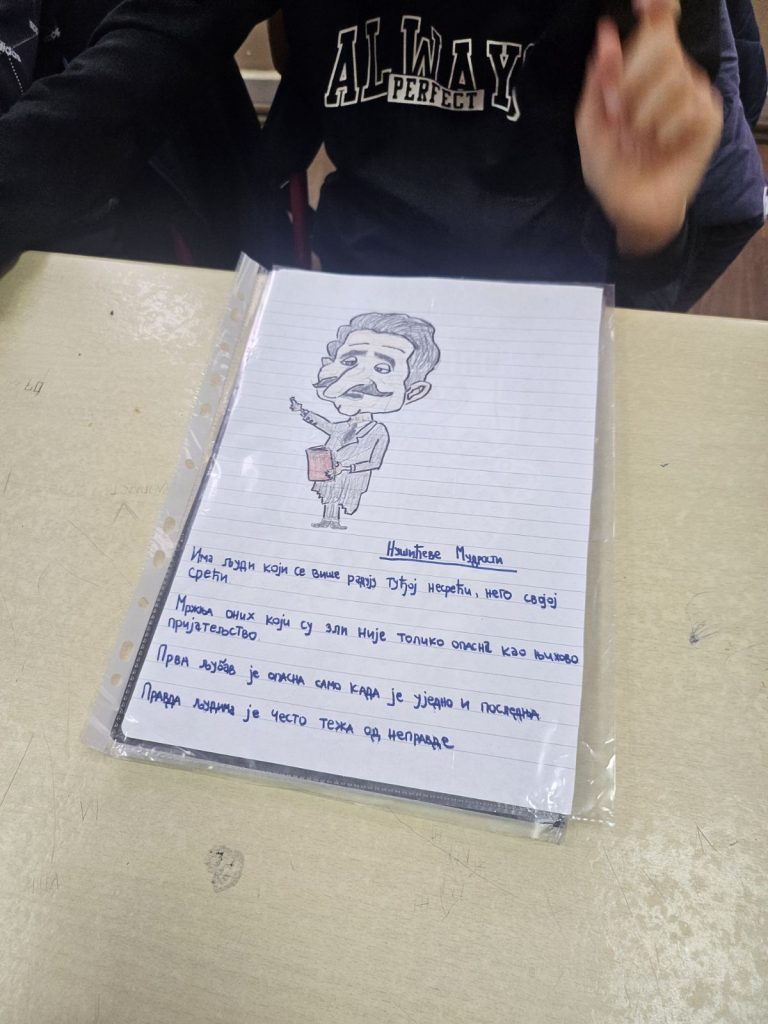 ALWAY
PERFECT
Нушићеве Мудрости
Има људи који се више радују туђој несрећи, него својој
срећи
Мржња оних који су зли није толико опасна као њихово
пријатељство
Прва љубав је опасна само када је уједно и последња
Правда људима је често тежа од неправде